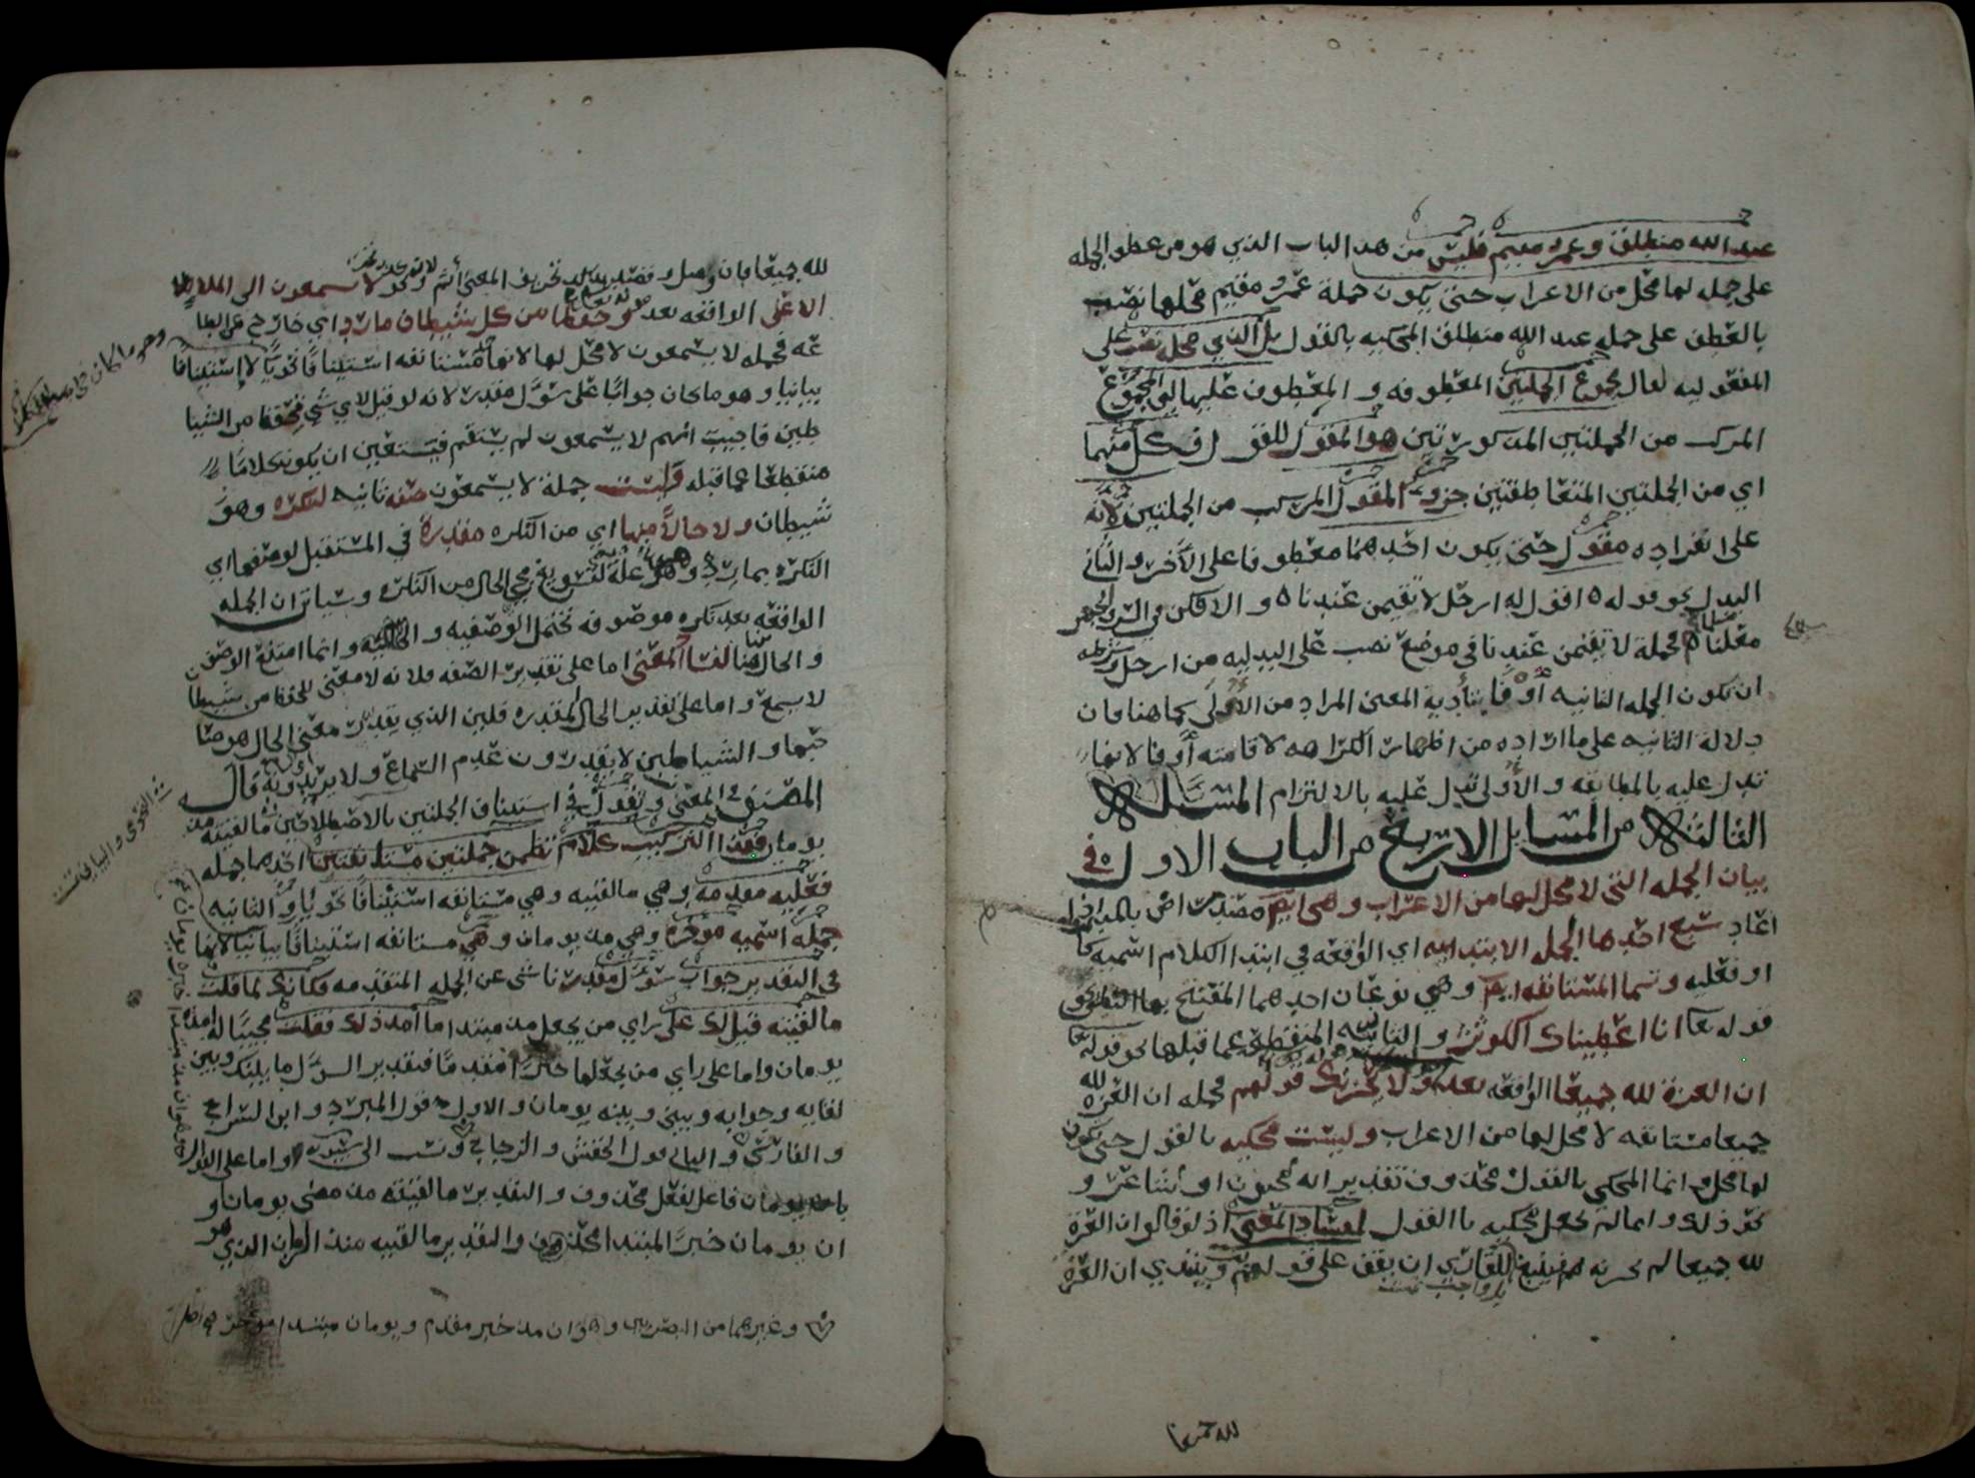 عبد الله منطلق وعمرو مقيم فليس من هذا الباب الذي هو من عطف الجمله
على جمله لها محل من الاعراب حتى يكون جملة عمرو مقيم محلها نصب
بالعطف على جمله عبد الله منطلق المحكيه بالقول بل الذي محله نصب على
المفعوليه لقال مجموع الجملتين المعطوفه و المعطوف عليها لان المجموع
المركب من الجملتين المذكورتين هو المقول للقول فكل منهما
اي من الجملتين المتعاطفتين جزو المقول المركب من الجملتين لا انه
على انفراده مقول حتى يكون احدهما معطوفا على الاخر و الثاني
البدل نحو قوله ه اقول له ارحل لا تقيمن عندنا ه و الا فكن في السر والجهر
مسلما ه فجملة لا تقيمن عندنا في موضع نصب على البدليه من ارحل وشرطه
ان تكون الجمله الثانيه أوفا بتأدية المعنى المراد من الاولى كما هنا فان
دلالة الثانيه على ما اراده من اظهار الكراهه لاقامته أوفا لانها
تدل عليه بالمطابقه و الأولى تدل عليه بالالتزام المسئلة
الثالثة من المسايل الاربع من الباب الاول في
بيان الجمله التي لا محل لها من الاعراب وهي ايضا مصدر اض بالمد اذا
عاد سبع احدها الجمله الابتدائيه اي الواقعه في ابتدا الكلام اسميه كا
او فعليه وتسما المستانفه ايضا وهي نوعان احدهما المفتتح بها النطق نحو
قوله تعا انا اعطيناك الكوثر و الثانيه المنقطعه عما قبلها نحو قوله تعا
ان العزة لله جميعا الواقعه بعد ولا يحزنك قولهم فجمله ان العزه لله
جميعا مستانفه لا محل لها من الاعراب وليست محكيه بالقول حتى يكون
لها محل وانما المحكي بالقول محذوف تقديره انه مجنون او شاعر و
نحو ذلك و انما لم تجعل محكيه باالقول لفساد المعنى اذ لو قالو ان العزة
لله جميعا لم يحزنه فينبغي للقاري ان يقف على قولهم ويبتدي ان العزة
بل واجب تمت
لله جميعا
لله جميعا فان وصل و قصد بذلك تحريف المعنى أثم ونحو لا يسمعون الى الملا
الاعلى الواقعه بعد وحفظا من كل شيطان مارد اي خارج عن الطا
عه فجمله لا يسمعون لا محل لها لانها مستانفه استينافا نحويا لا إستينافا
بيانيا و هو ما كان جوابا على سؤل مقدر لانه لو قيل لاي شي تحفظ من الشيا
طين فاجيب انهم لا يسمعون لم يستقم فيتعين ان يكون كلاما
منقطعا عما قبله وليست جملة لا يسمعون صفه ثانيه لنكره وهو
شيطان ولا حالا منها اي من النكره مقدرة في المستقبل لوصفها اي
النكره بمارد وهو علة لتسويغ مجي الحال من النكره وسياتي ان الجمله
الواقعه بعد نكره موصوفه تحتمل الوصفيه و الحاليه وانما امتنع الوصف
و الحال هنا لفساد المعنى اما على تقدير الصفه فلانه لا معنى للحفظ من شيطان
لا يسمع و اما على تقدير الحال المقدره فلان الذي يقدر معنى الحال هو صا
حبها و الشياطين لا يقدرون عدم السماع ولا يريدونه قال
المصنف في المغني وتقول في استيناف الجملتين بالاصطلاحين ما لقيته مذ
يومان فهذا التركيب كلام تضمن جملتين مستانفتين احدهما جمله
فعليه مقدمه وهي ما لقيته وهي مستانفه استينافا نحويا والثانيه
جملة اسميه موخره وهي مذ يومان وهي مستانفه استينافا بيانيا لانها
في التقدير جواب سؤل مقدر ناشى عن الجمله المتقدمه فكانك لما قلت
ما لقيته قيل لك على راي من يجعل مذ مبتدا ما أمد ذلك فقلت مجيبا له امده
يومان واما على راي من يجعلها خبرا مقدما فتقدير السؤل ما بينك وبين
لقايه وجوابه وبيني وبينه يومان و الاول قول المبرد و ابن السراج
و الفارسي و الثاني قول الاخفش و الزجاجي ونسب الى سيبويه واما على القول
بان يومان فاعل لفعل محذوف و التقدير ما لقيته مذ مضى يومان او
ان يومان خبر المبتدا محذوف و التقدير ما لقيته منذ الزمان الذي هو
وغيرهما من البصريين وهو ان مذ خبر مقدم و يومان مبتدا مؤخر
النحوي والبياني تمت